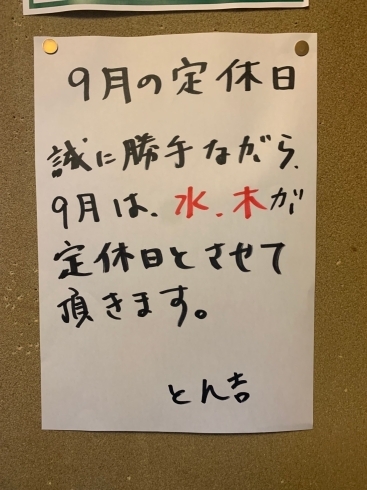 9月の定休日
誠に勝手ながら、
9月は、水、木が
定休日とさせて
頂きます。
とん吉